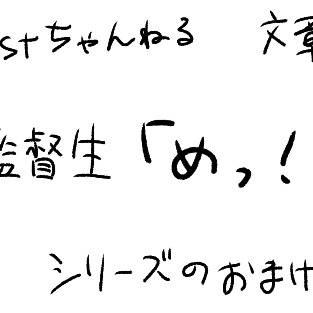 stちゃんねる 文章
監督生「めっ!
シリーズのおまけ